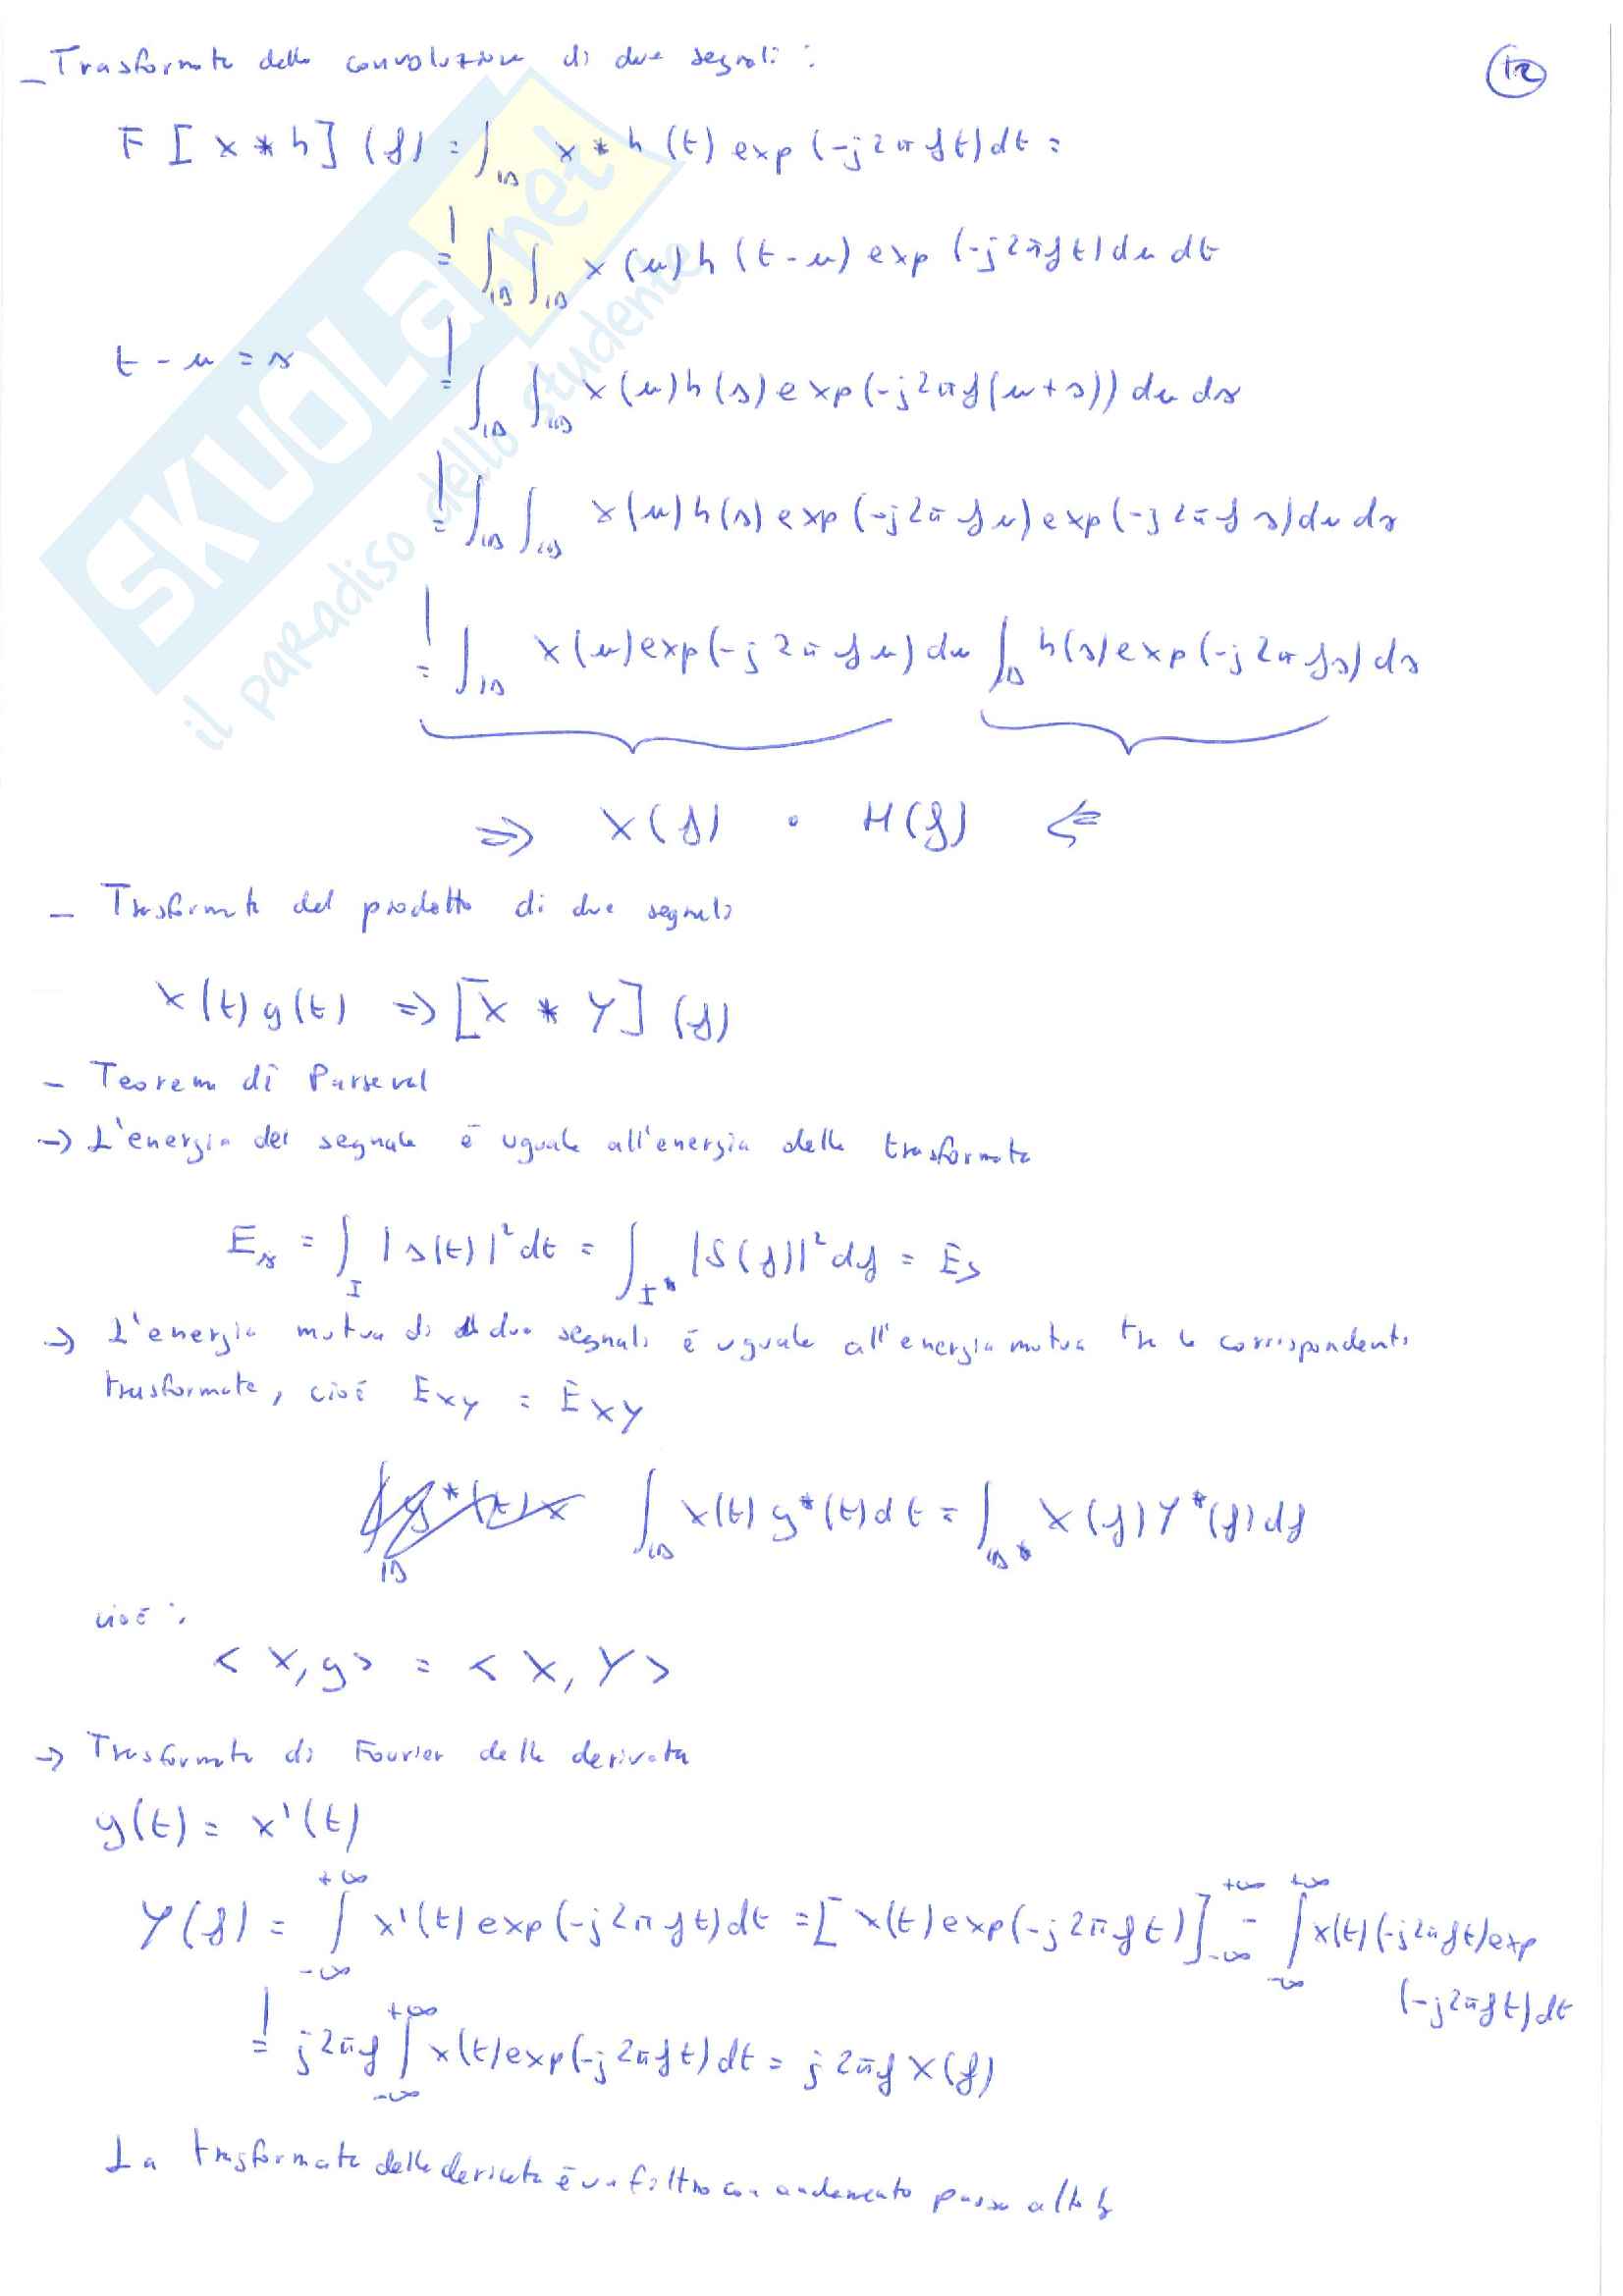 - Trasformata della convoluzione di due segnali :
12
F [ x * h ] (f) = ∫_ℝ x * h (t) exp (-j2πft)dt =
= ∫_ℝ ∫_ℝ x (u) h (t-u) exp (-j2πft) du dt
t - u = s = ∫_ℝ ∫_ℝ x (u) h (s) exp (-j2πf(u+s)) du ds
= ∫_ℝ ∫_ℝ x (u) h (s) exp (-j2πfu) exp (-j2πfs) du ds
= ∫_ℝ x (u) exp (-j2πfu) du ∫_ℝ h(s) exp (-j2πfs) ds
⇒ X(f) · H(f) ⇐
- Trasformata del prodotto di due segnali
x(t) y(t) ⇒ [X * Y] (f)
- Teorema di Parseval
→ L'energia del segnale è uguale all'energia della trasformata
E_s = ∫_I |s(t)|² dt = ∫_I* |S(f)|² df = E_S
→ L'energia mutua di due segnali è uguale all'energia mutua tra le corrispondenti
trasformate, cioè E_xy = E_XY
∫_ℝ x(t) y*(t) dt = ∫_ℝ* X(f) Y*(f) df
cioè :
< x, y > = < X, Y >
→ Trasformata di Fourier della derivata
y(t) = x'(t)
Y(f) = ∫_-∞^+∞ x'(t) exp (-j2πft) dt = [ x(t) exp (-j2πft) ]_-∞^+∞ - ∫_-∞^+∞ x(t) (-j2πft) exp
(-j2πft) dt
= j2πf ∫_-∞^+∞ x(t) exp (-j2πft) dt = j2πf X(f)
La trasformata della derivata è un filtro con andamento passa alto
SKUOLA.net
il paradiso dello studente